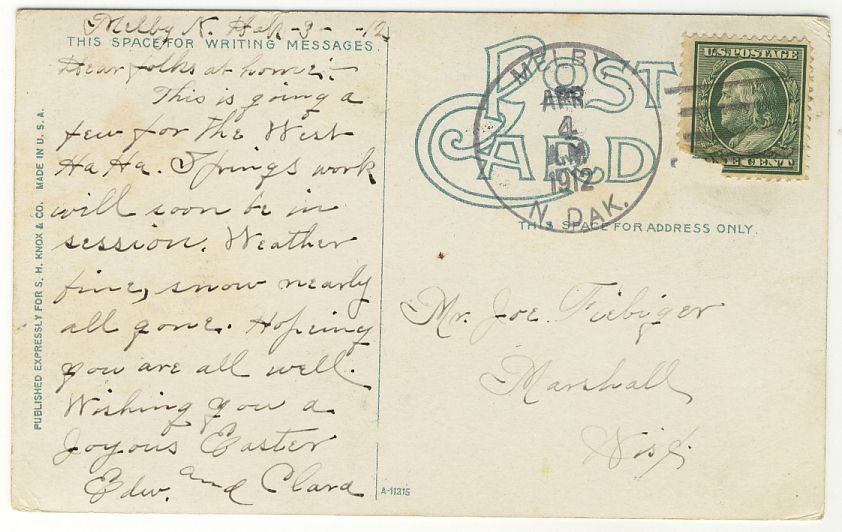 Melby N. Dak. -3- -12
THIS SPACE FOR WRITING MESSAGES.
Dear folks at home:-
This is going a
few for the West
Ha Ha. Springs work
will soon be in
session. Weather
fine, snow nearly
all gone. Hopeing
you are all well.
Wishing you a
Joyous Easter
Edw. and Clara
PUBLISHED EXPRESSLY FOR S. H. KNOX & CO. MADE IN U. S. A.
A-11315
POST
CARD
MELBY,
APR
4
A.M.
1912
N. DAK.
U.S. POSTAGE
ONE CENT
THIS SPACE FOR ADDRESS ONLY.
Mr. Joe. Fiebiger
Marshall
Wis.